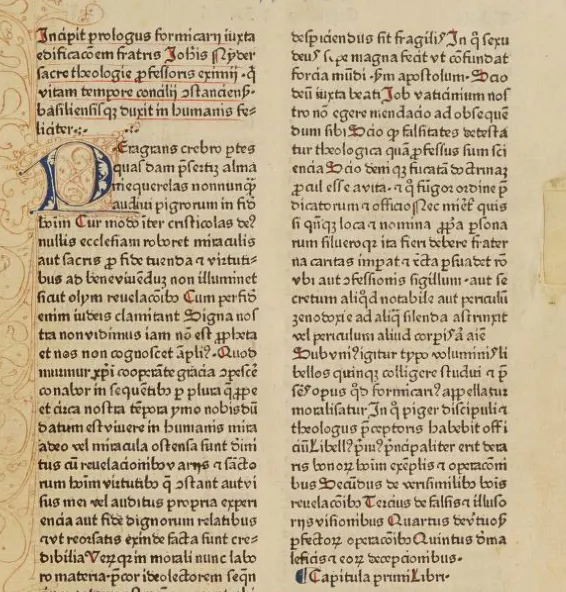 Incipit prologus formicarij iuxta
edificacōem fratris Johīs Nyder
sacre theologie ꝓfessoris eximij · q̄
vitam tempore concilij ↄstanciēn̄·
basiliensisqꝫ duxit in humanis fe⸗
liciter·:·
PEragrans crebro ꝑtes
quasdam p̄sertī alma
nie querelas nonnunqꝫ
audiui pigrorum in fid
hoīm Cur modo iter cristicolas deꝰ
nullis ecclesiam roboret miraculis
aut sacris ꝓ fide tuenda ⁊ virtuti⸗
bus ad beneuiuēduꝫ non illuminet
sicut olym reuelacōibꝰ Cum perfidi
enim iudeis clamitant Signa nos
tra non vidimus iam nō est ꝓpheta
et nos non cognoscet āpliꝰ· Quod
cooperāte gracia ↄpescē
conabor in sequētibꝰ ꝑ plura q̄ ꝓpe
et circa nostra tēpora ymo nobisdū
datum est viuere in humanis mira
adeo vel miracula ostensa sunt diui
tus cū reuelacionibꝰ ⁊ sāctoꝝ
hoīm virtutibꝰ q̄ ↄstant aut vi
sus mei vel auditus propria experi
encia aut fide dignorum relatibus
⁊ vt exinde facta sunt cre⸗
dibilia in morali nunc labo
ro materia
despiciendus sit fragilis In q̄ sexu
deus sepe magna fecit vt cōfundat
forcia mūdi ẜm apostolum· Scio
deū iuxta beati Job vaticinium nos
tro nō egere mendacio ad obsequē
dum sibi Scio ꝙ falsitates detesta
tur theologica quā ꝓfessus sum sci
encia Scio deniqꝫ fucatā doctrinaꝫ
ꝓcul esse a vita· ⁊ q̄ fūgor ordine p̄
dicatorum ⁊ officio Nec quis
si qn̄qꝫ loca ⁊ nomina ꝓpͥa ꝑsona
rum siluero ita fieri debere frater
na caritas imꝑat ⁊ ꝑsuadet rō
vbi aut ↄfessionis sigillum · aut se
cretum aliqd notabile aut periculū
zenodoxie ad aliqͥ silenda astrinxit
vel periculum aliud corpis ⁊ aīe
Sub vniꝰ igitur typo voluminis li
bellos quinqꝫ colligere studui ⁊ p̄
sens opus qd formicariꝰ appellatur
moralisatur In q̄ piger discipuli ⁊
theologus p̄ceptoris habebit offi
ciū Libellꝰ pͥmꝰ pͥncipaliter erit de ra
ris bonoꝝ hoīm exēplis ⁊ operacōni
bus Secūdus de verisimilibꝰ bois
reuelacōibꝰ Tercius de falsis ⁊ illuso
rijs visionibus Quartus de vͥtuoſꝭ
ꝑfectoꝝ operacōibꝰ Quintus d̄ ma
leficis ⁊ eoꝝ decepcionibus·
¶ Capitula primi Libri·